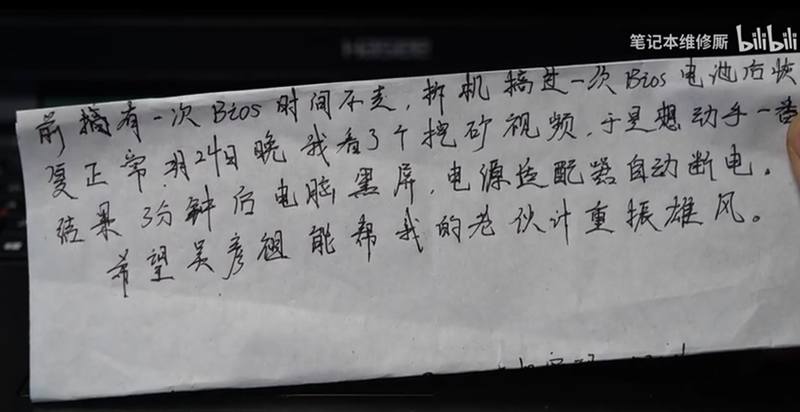 笔记本维修厮 bilibili
前搞有一次Bios时间不走,拆机搞过一次Bios电池后恢
复正常,月24日晚我看了个挖矿视频,于是想动手一番
结果3分钟后电脑黑屏,电源适配器自动断电。
希望吴彦祖能帮我的老伙计重振雄风。